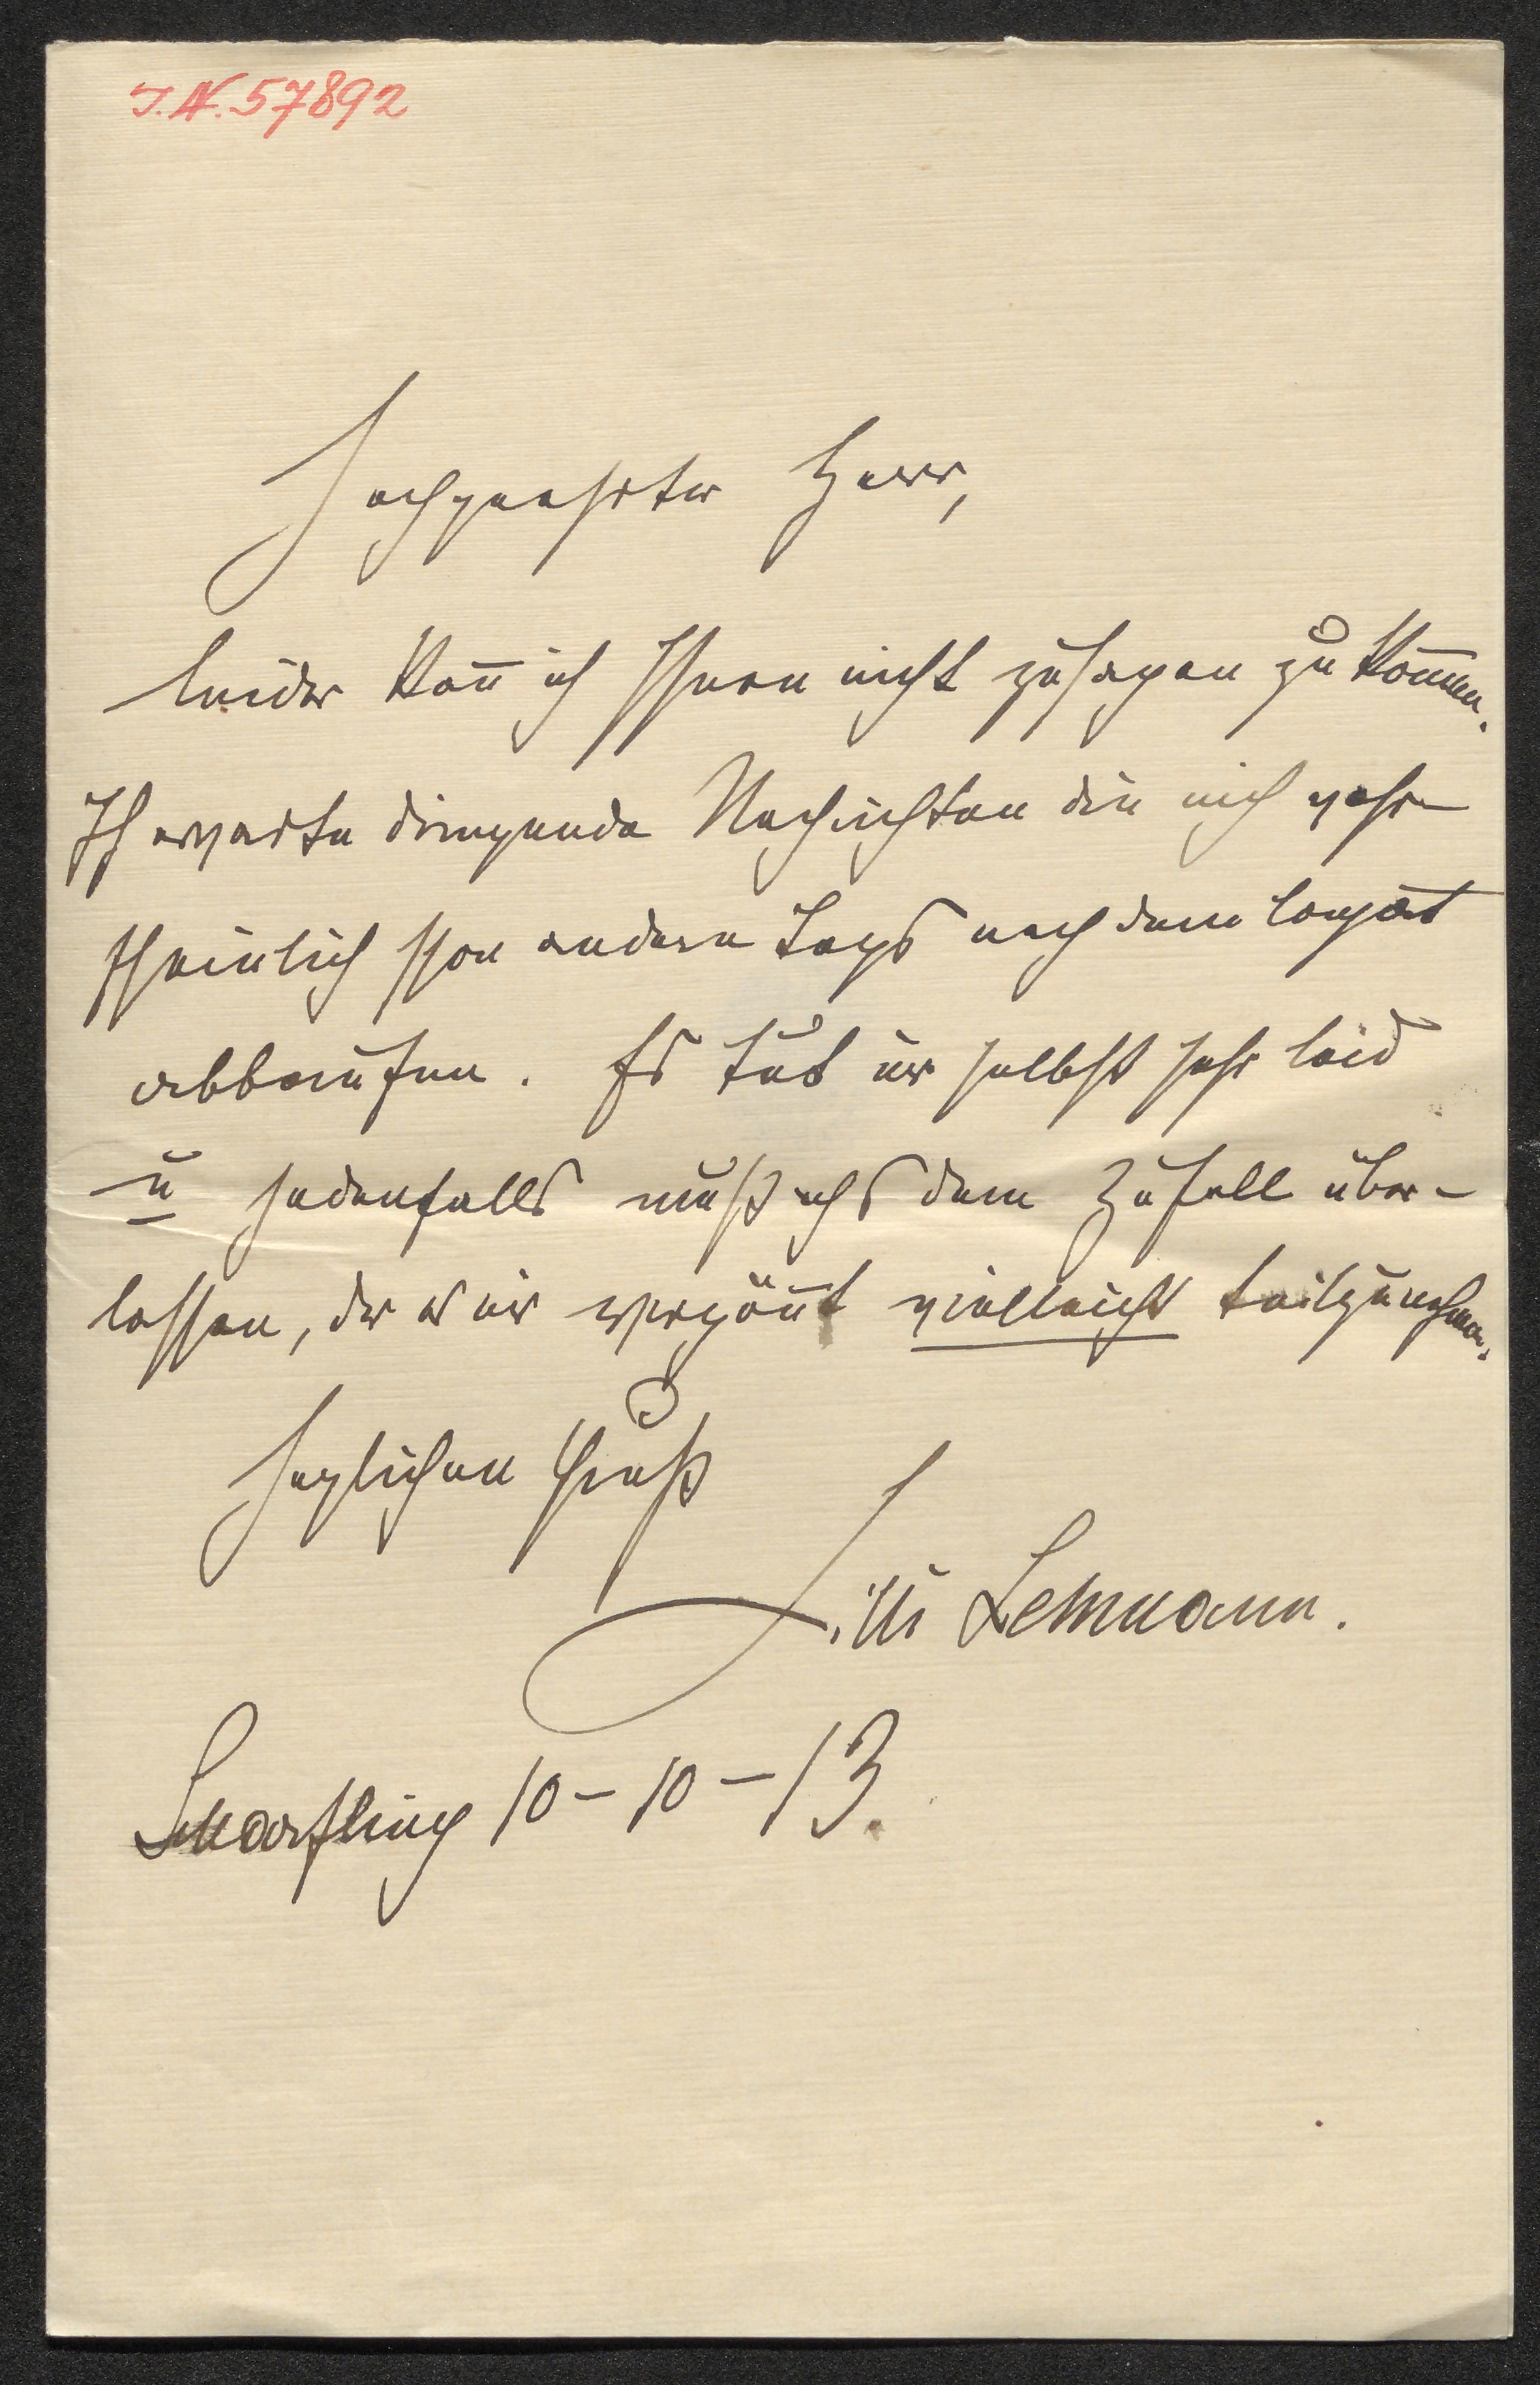 I.N. 57892
Hochgeehrter Herr,
leider kan̄ ich Ihnen nicht zusagen zu kom̄en.
Ich erwarte dringende Nachrichten die mich wahr-
scheinlich schon andern Tags nach dem
abberufen. Es tut mir selbst sehr leid
u jedenfalls muß ichs dem Zufall über-
lassen, der es mir vergön̄t vielleicht teilzunehmen.
Herzlichen Gruß
Lilli Lehmann.
Scharfling 10-10-13.